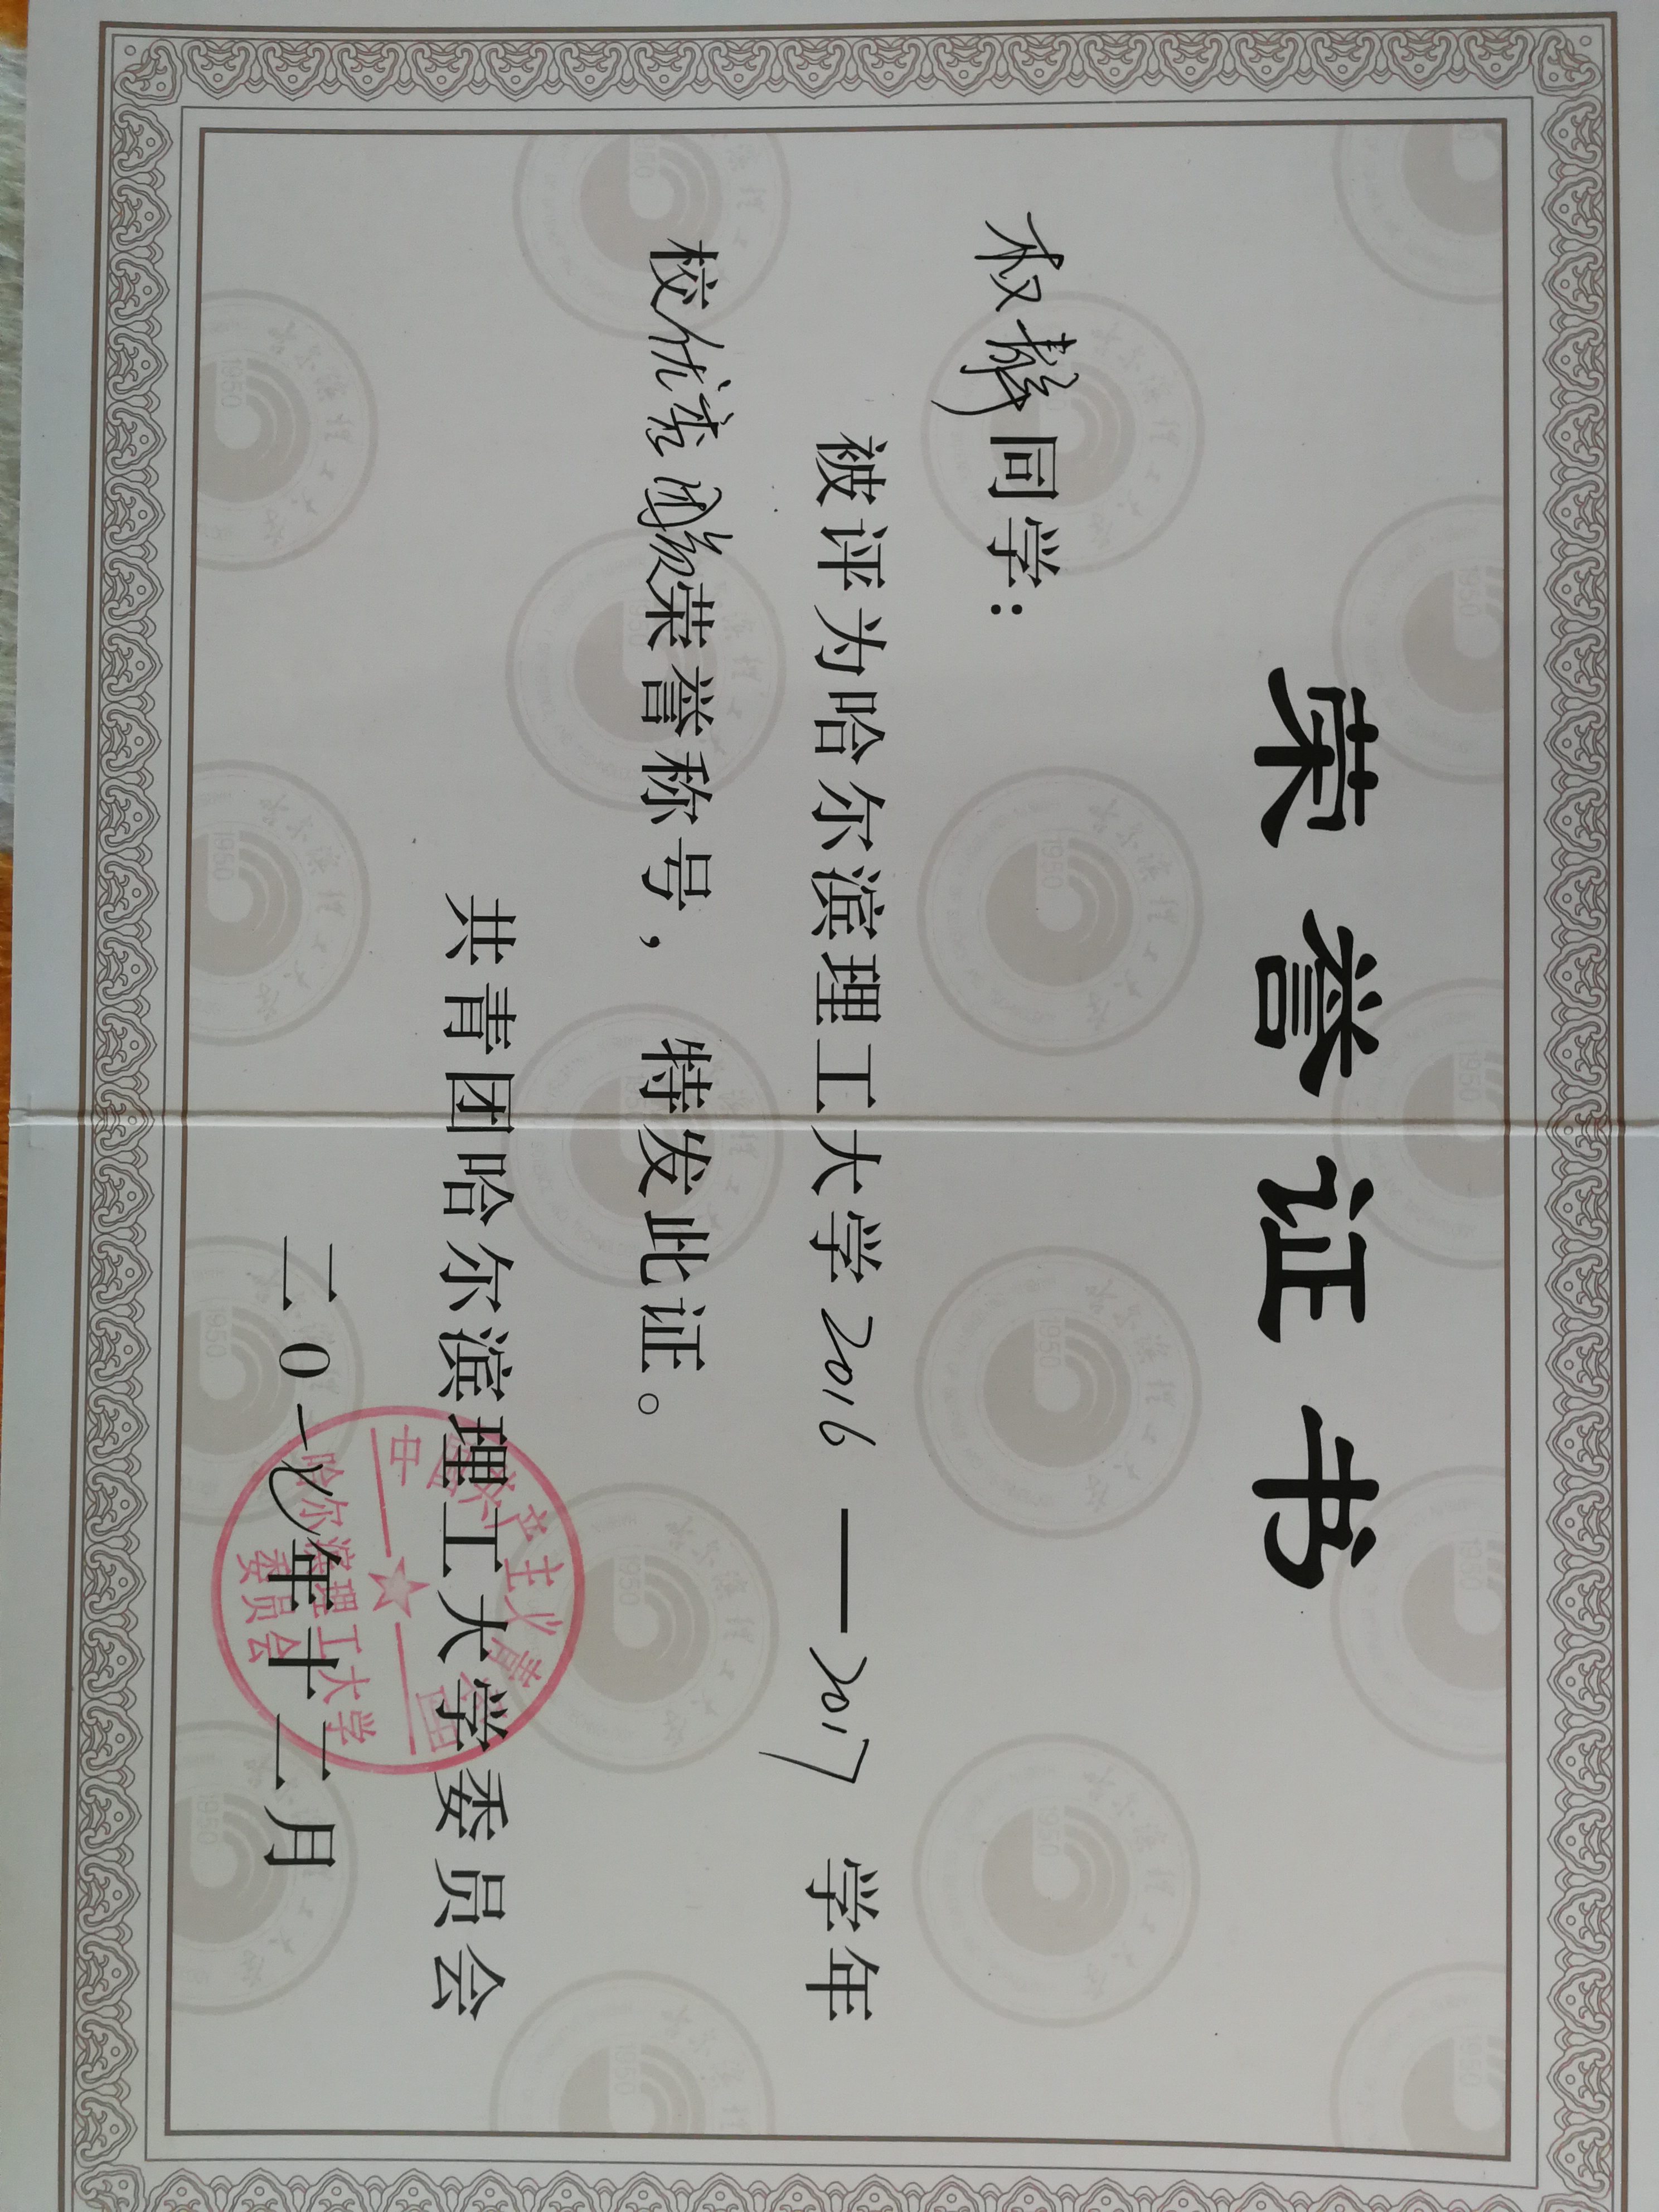 荣誉证书
权 同学：
被评为哈尔滨理工大学2016——2017 学年
校优秀团员荣誉称号，特发此证。
共青团哈尔滨理工大学委员会
二0一七年十二月
中国共产主义青年团
哈尔滨理工大学
委员会
哈尔滨理工大学
1950